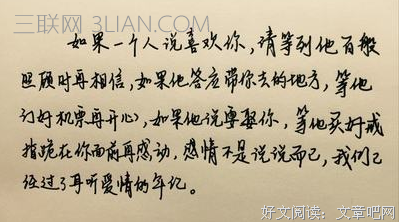 三联网 3LIAN.COM
如果一个人说喜欢你，请等到他百般
照顾时再相信，如果他答应带你去的地方，等他
订好机票再开心，如果他说要娶你，等他买好戒
指跪在你面前再感动，感情不是说说而已，我们已
经过了耳听爱情的年纪。
好文阅读：文章吧网